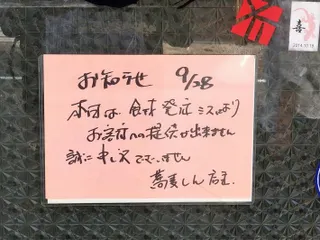 お知らせ 9/28
本日は、食材発注ミスにより
お客様への提供が出来ません
誠に申し訳ございません
蕎麦しん 店主.
喜